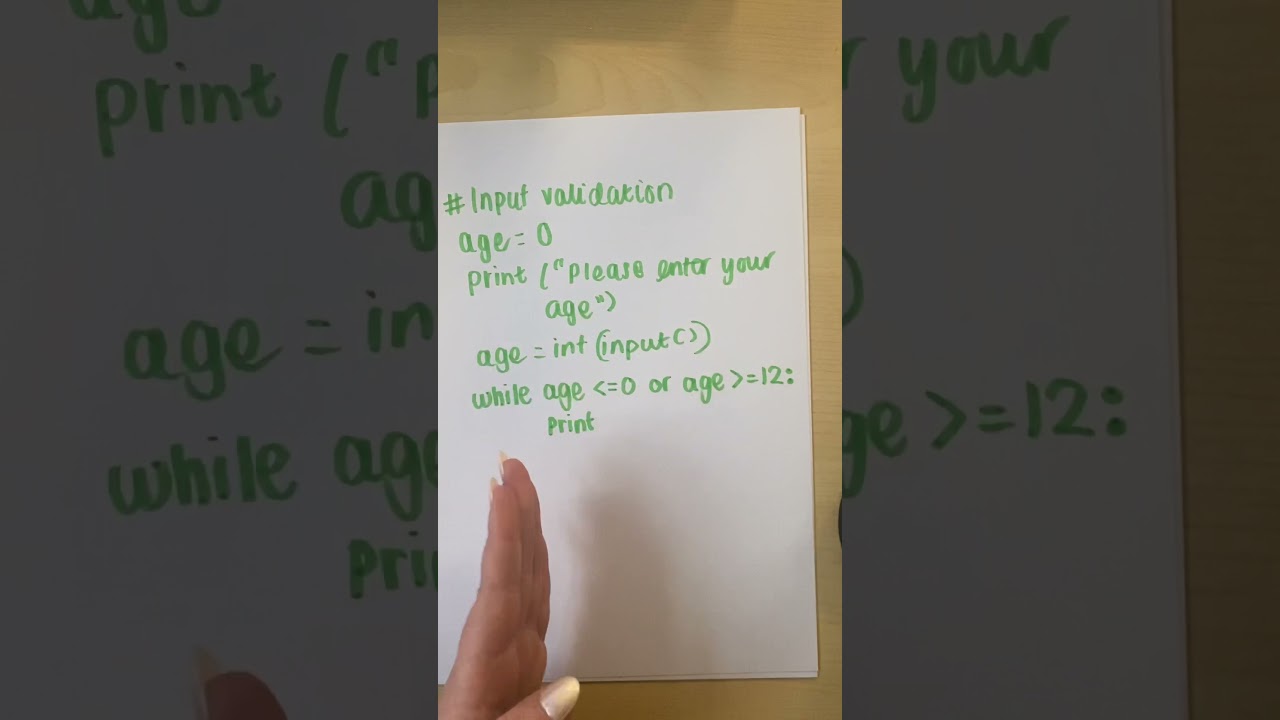 # Input validation
age = 0
print ("Please enter your
age")
age = int (input())
while age <=0 or age >=12:
print